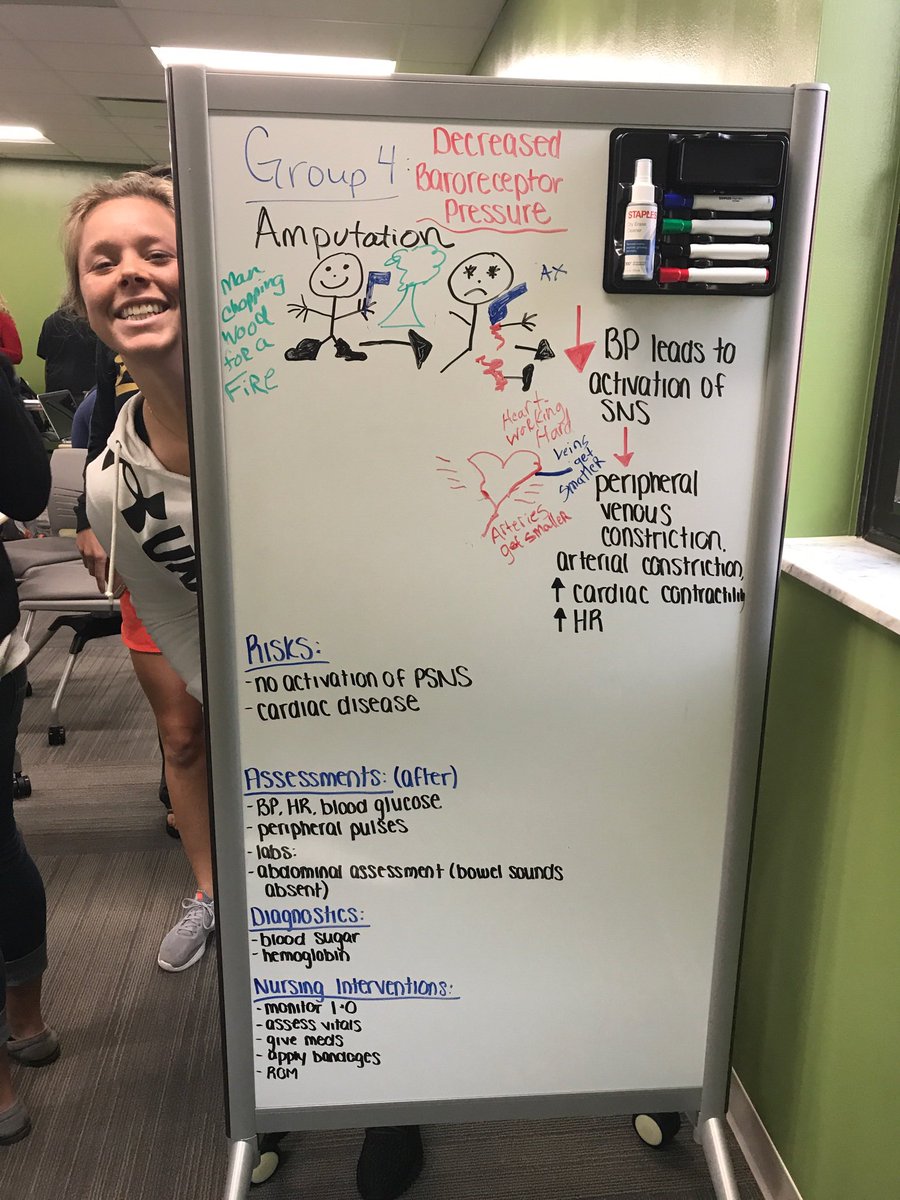 Group 4:
Decreased
Baroreceptor
Pressure
Amputation
Man
chopping
wood
for a
FiRe
AX
STAPLES
↓ BP leads to
activation of
SNS
↓
peripheral
venous
constriction,
arterial constriction,
↑ cardiac contractility
↑ HR
Heart
working
Hard
veins
get
smaller
Arteries
get smaller
Risks:
-no activation of PSNS
-cardiac disease
Assessments: (after)
-BP, HR, blood glucose
-peripheral pulses
-labs:
-abdominal assessment (bowel sounds
absent)
Diagnostics:
-blood sugar
-hemoglobin
Nursing Interventions:
-monitor I+O
-assess vitals
-give meds
-apply bandages
-ROM
UN